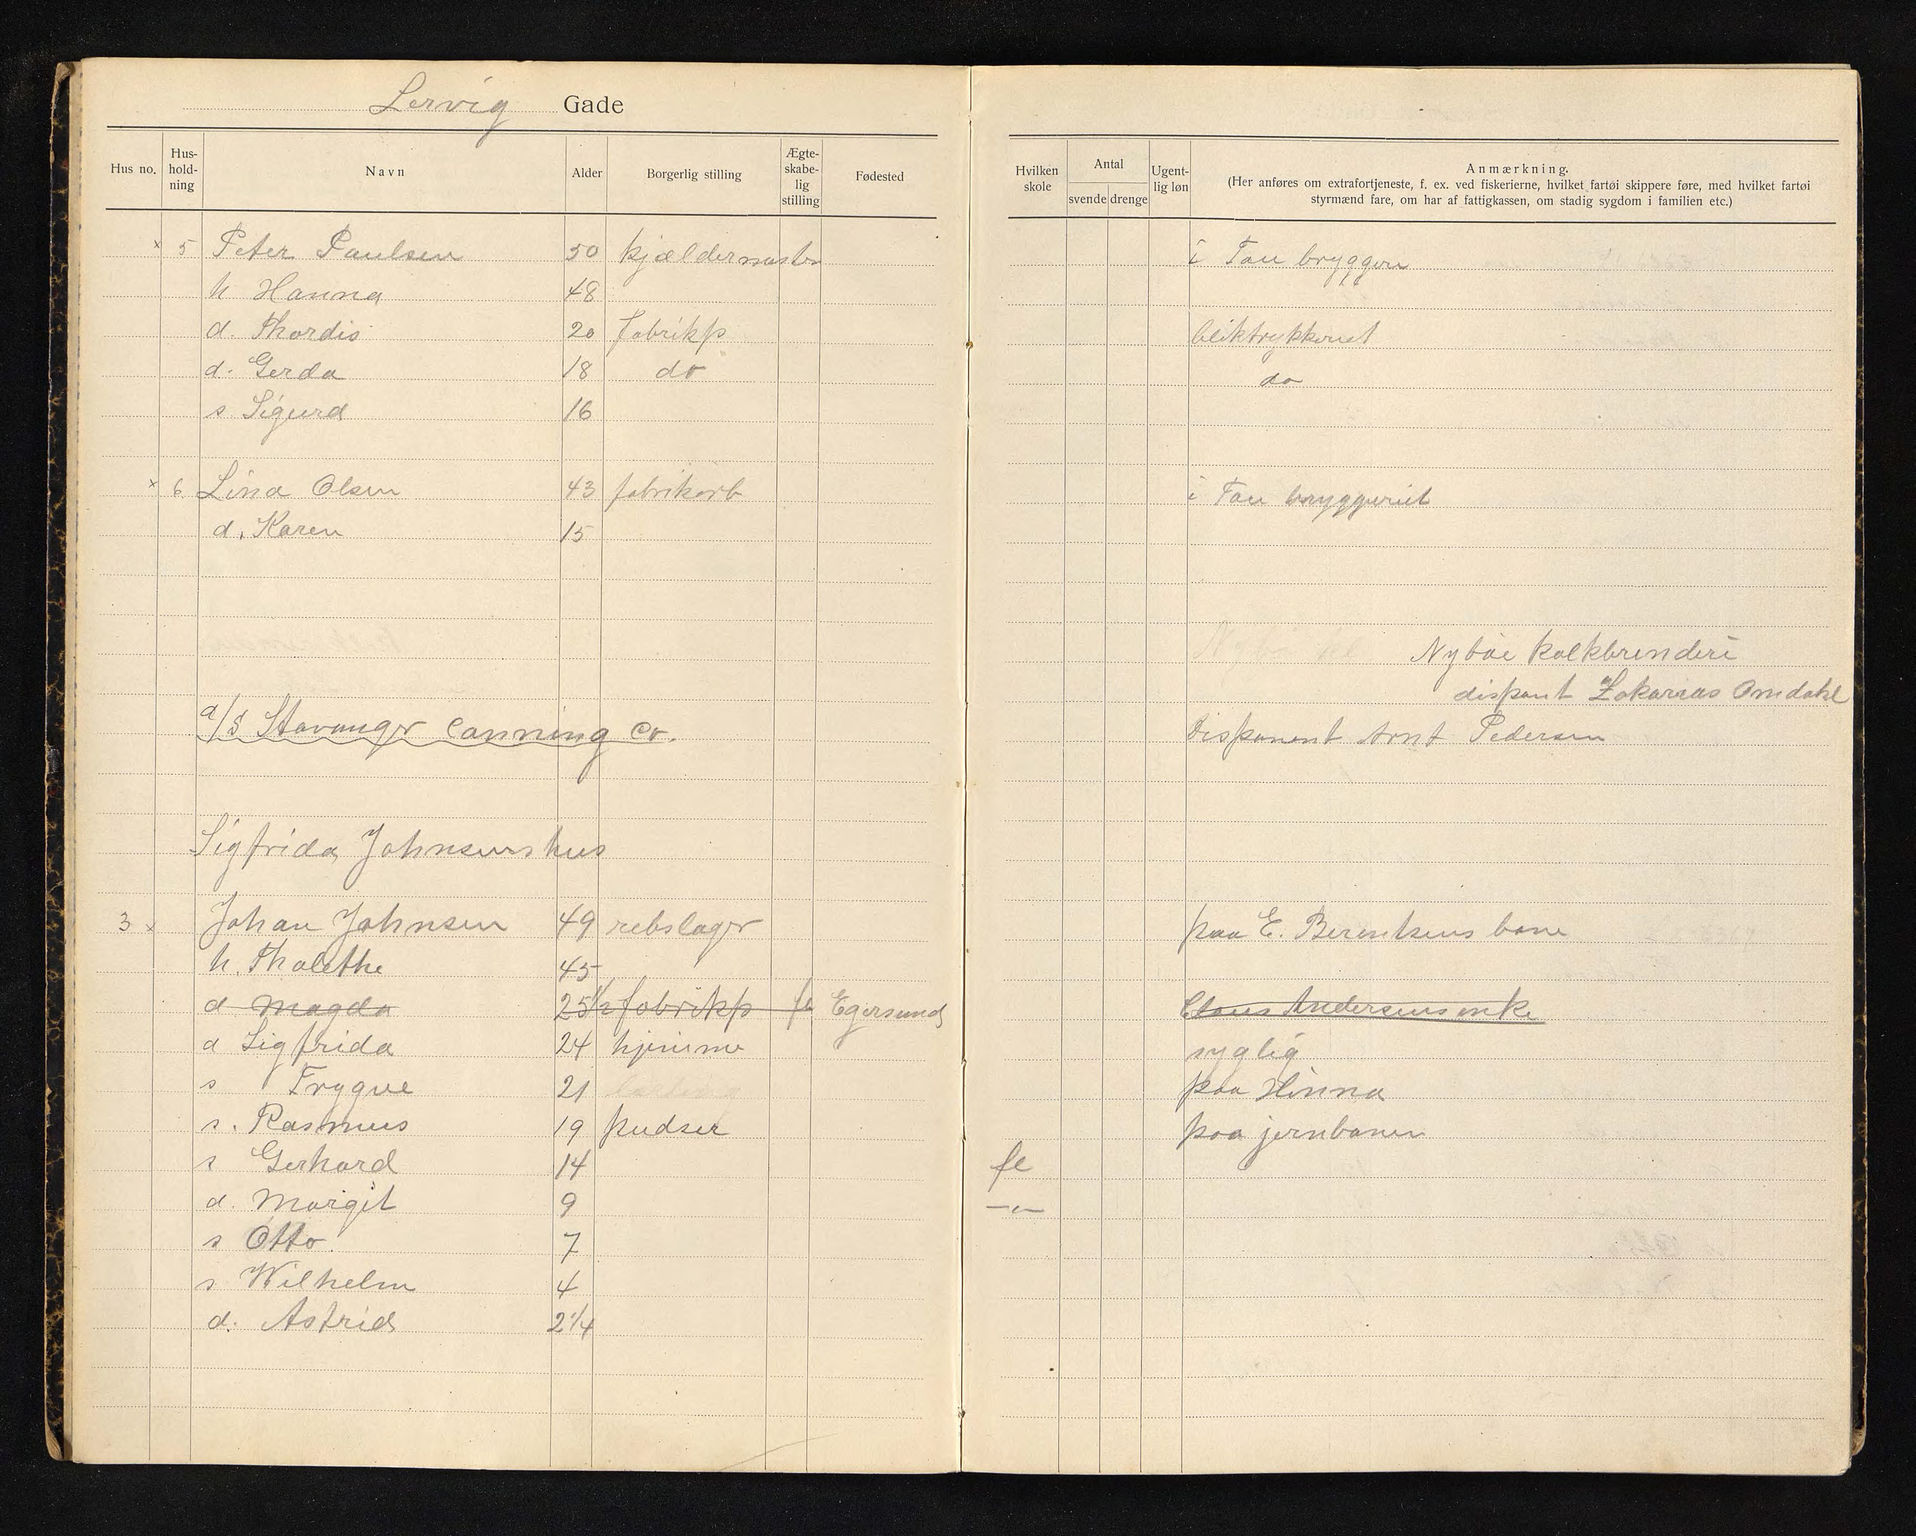 Lervig Gade
Hus no. Hus-holdning Navn Alder Borgerlig stilling Ægte-skabe-lig stilling Fødested Hvilken skole Antal svende drenge Ugent-lig løn Anmærkning.
(Her anføres om extrafortjeneste, f. ex. ved fiskerierne, hvilket fartøi skippere føre, med hvilket fartøi
styrmænd fare, om har af fattigkassen, om stadig sygdom i familien etc.)
x 5 Peter Paulsen 50 kjældermester i Tou bryggeri
h Hanna 48
d. Thordis 20 fabrikp bliktrykkeriet
d. Gerda 18 do do
s Sigurd 16
x 6 Lina Olsen 43 fabrikarb i Tou bryggeriet
d. Karen 15
Nybøe kalkbrenderi
dispont Zakarias Omdahl
a/s Stavanger Canning Co. Disponent Arnt Pedersen
Sigfrida Johnsens hus
3 x Johan Johnsen 49 rebslager paa E. Berentsens bane
h. Tholethe 45
d Magda 25 1/2 fabrikp fl Egersund Claus Andersens enke
d Sigfrida 24 hjemme syglig
s Trygve 21 paa Hinna
s. Rasmus 19 pudser paa jernbanen
s Gerhard 14 fl
d. Margit 9 -"-
s Otto 7
s Wilhelm 4
d. Astrid 2 1/4